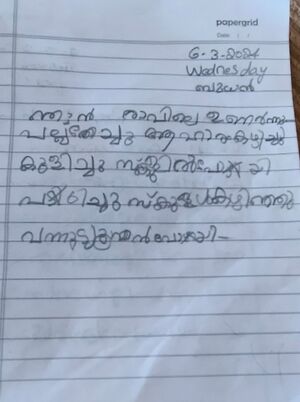 papergrid
Date: / /
6-3-2024
Wednesday
ബുധൻ
ഞാൻ രാവിലെ ഉണർന്നു
പല്ലുതേച്ചു ആഹാരംകഴിച്ചു
കുളിച്ചു സ്കൂളിൽപോയി
പഠിച്ചു സ്കൂൾകഴിഞ്ഞു
വന്നു